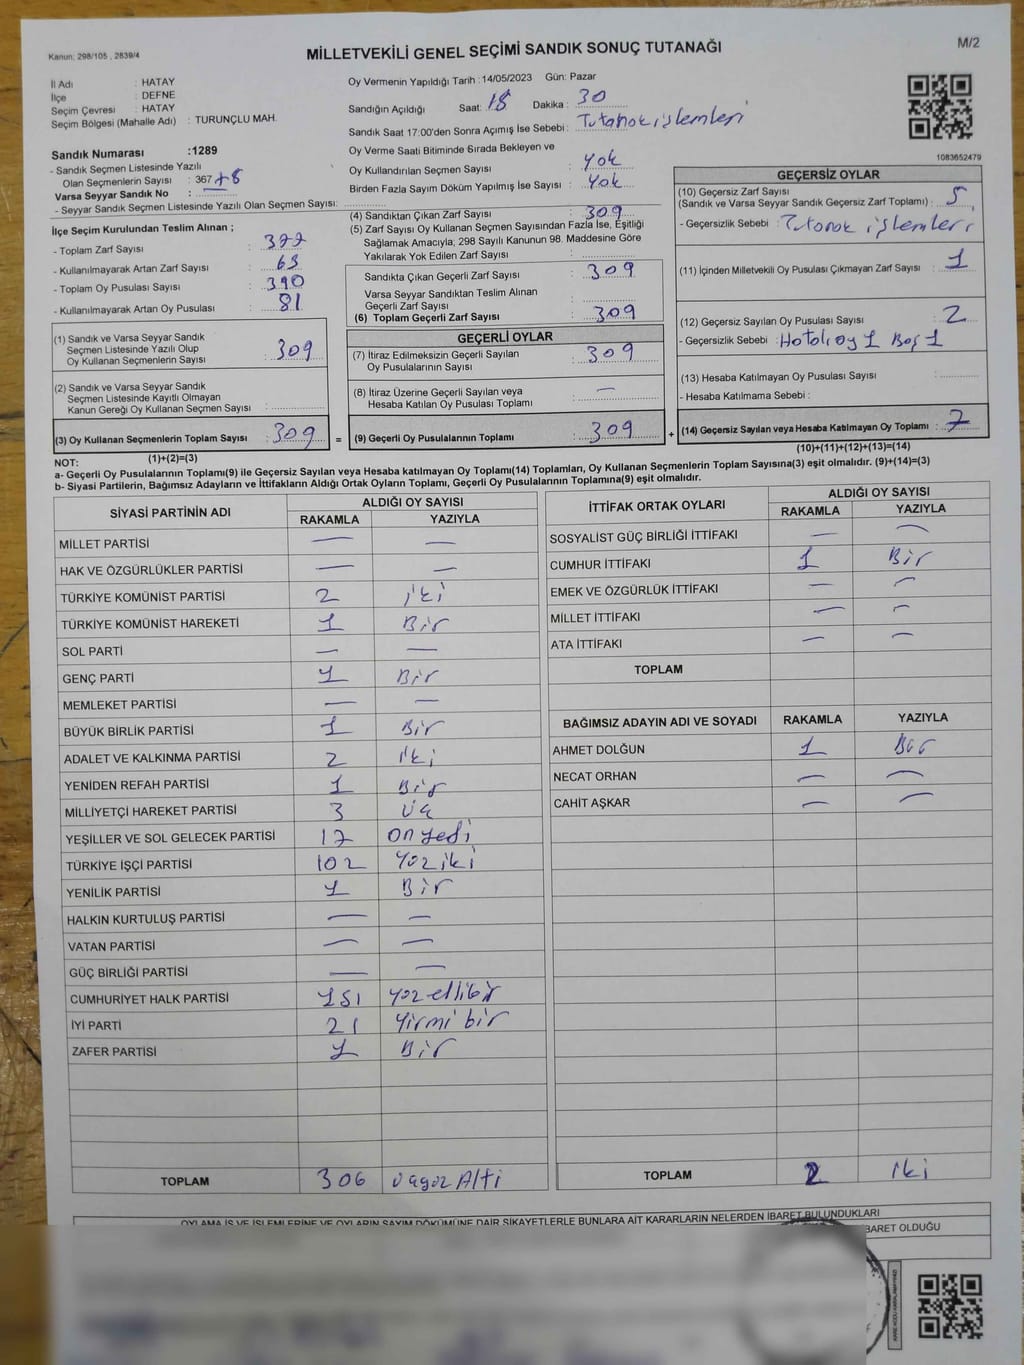 Kanun: 298/105 , 2839/4
MİLLETVEKİLİ GENEL SEÇİMİ SANDIK SONUÇ TUTANAĞI
M/2
İl Adı : HATAY
İlçe : DEFNE
Seçim Çevresi : HATAY
Seçim Bölgesi (Mahalle Adı) : TURUNÇLU MAH.
Oy Vermenin Yapıldığı Tarih : 14/05/2023 Gün: Pazar
Sandığın Açıldığı Saat: 18 Dakika : 30
Sandık Saat 17:00'den Sonra Açımış İse Sebebi : Tutanak işlemleri
Oy Verme Saati Bitiminde Sırada Bekleyen ve
Oy Kullandırılan Seçmen Sayısı : Yok
Birden Fazla Sayım Döküm Yapılmış İse Sayısı : Yok
1083652479
Sandık Numarası :1289
- Sandık Seçmen Listesinde Yazılı
Olan Seçmenlerin Sayısı : 367 +8
Varsa Seyyar Sandık No :
- Seyyar Sandık Seçmen Listesinde Yazılı Olan Seçmen Sayısı:
İlçe Seçim Kurulundan Teslim Alınan ;
- Toplam Zarf Sayısı : 377
- Kullanılmayarak Artan Zarf Sayısı : 63
- Toplam Oy Pusulası Sayısı : 390
- Kullanılmayarak Artan Oy Pusulası : 81
(1) Sandık ve Varsa Seyyar Sandık
Seçmen Listesinde Yazılı Olup
Oy Kullanan Seçmenlerin Sayısı : 309
(2) Sandık ve Varsa Seyyar Sandık
Seçmen Listesinde Kayıtlı Olmayan
Kanun Gereği Oy Kullanan Seçmen Sayısı :
(3) Oy Kullanan Seçmenlerin Toplam Sayısı : 309 =
(1)+(2)=(3)
(4) Sandıktan Çıkan Zarf Sayısı : 309
(5) Zarf Sayısı Oy Kullanan Seçmen Sayısından Fazla İse, Eşitliği
Sağlamak Amacıyla; 298 Sayılı Kanunun 98. Maddesine Göre
Yakılarak Yok Edilen Zarf Sayısı :
Sandıkta Çıkan Geçerli Zarf Sayısı : 309
Varsa Seyyar Sandıktan Teslim Alınan
Geçerli Zarf Sayısı :
(6) Toplam Geçerli Zarf Sayısı : 309
GEÇERLİ OYLAR
(7) İtiraz Edilmeksizin Geçerli Sayılan
Oy Pusulalarının Sayısı : 309
(8) İtiraz Üzerine Geçerli Sayılan veya
Hesaba Katılan Oy Pusulası Toplamı : —
(9) Geçerli Oy Pusulalarının Toplamı : 309 +
GEÇERSİZ OYLAR
(10) Geçersiz Zarf Sayısı
(Sandık ve Varsa Seyyar Sandık Geçersiz Zarf Toplamı) : 5
- Geçersizlik Sebebi : Tutanak işlemleri
(11) İçinden Milletvekili Oy Pusulası Çıkmayan Zarf Sayısı : 1
(12) Geçersiz Sayılan Oy Pusulası Sayısı : 2
- Geçersizlik Sebebi : Hatalı oy 1 Boş 1
(13) Hesaba Katılmayan Oy Pusulası Sayısı :
- Hesaba Katılmama Sebebi :
(14) Geçersiz Sayılan veya Hesaba Katılmayan Oy Toplamı : 7
(10)+(11)+(12)+(13)=(14)
NOT:
a- Geçerli Oy Pusulalarının Toplamı(9) ile Geçersiz Sayılan veya Hesaba katılmayan Oy Toplamı(14) Toplamları, Oy Kullanan Seçmenlerin Toplam Sayısına(3) eşit olmalıdır. (9)+(14)=(3)
b- Siyasi Partilerin, Bağımsız Adayların ve İttifakların Aldığı Ortak Oyların Toplamı, Geçerli Oy Pusulalarının Toplamına(9) eşit olmalıdır.
SİYASİ PARTİNİN ADI
ALDIĞI OY SAYISI
RAKAMLA YAZIYLA
MİLLET PARTİSİ — —
HAK VE ÖZGÜRLÜKLER PARTİSİ — —
TÜRKİYE KOMÜNİST PARTİSİ 2 iki
TÜRKİYE KOMÜNİST HAREKETİ 1 Bir
SOL PARTİ — —
GENÇ PARTİ 1 Bir
MEMLEKET PARTİSİ — —
BÜYÜK BİRLİK PARTİSİ 1 Bir
ADALET VE KALKINMA PARTİSİ 2 iki
YENİDEN REFAH PARTİSİ 1 Bir
MİLLİYETÇİ HAREKET PARTİSİ 3 Üç
YEŞİLLER VE SOL GELECEK PARTİSİ 17 on yedi
TÜRKİYE İŞÇİ PARTİSİ 102 Yüz iki
YENİLİK PARTİSİ 1 Bir
HALKIN KURTULUŞ PARTİSİ — —
VATAN PARTİSİ — —
GÜÇ BİRLİĞİ PARTİSİ — —
CUMHURİYET HALK PARTİSİ 151 Yüz ellibir
İYİ PARTİ 21 Yirmi bir
ZAFER PARTİSİ 1 Bir
TOPLAM 306 üçyüz Altı
İTTİFAK ORTAK OYLARI
ALDIĞI OY SAYISI
RAKAMLA YAZIYLA
SOSYALİST GÜÇ BİRLİĞİ İTTİFAKI — —
CUMHUR İTTİFAKI 1 Bir
EMEK VE ÖZGÜRLÜK İTTİFAKI — —
MİLLET İTTİFAKI — —
ATA İTTİFAKI — —
TOPLAM
BAĞIMSIZ ADAYIN ADI VE SOYADI RAKAMLA YAZIYLA
AHMET DOLĞUN 1 Bir
NECAT ORHAN — —
CAHİT AŞKAR — —
TOPLAM 2 iki
OYLAMA İŞ VE İŞLEMLERİNE VE OYLARIN SAYIM DÖKÜMÜNE DAİR ŞİKAYETLERLE BUNLARA AİT KARARLARIN NELERDEN İBARET BULUNDUKLARI
BARET OLDUĞU